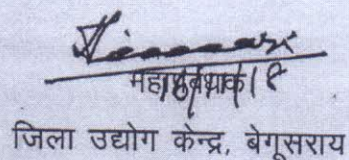 महाप्रबंधक
जिला उद्योग केन्द्र, बेगूसराय